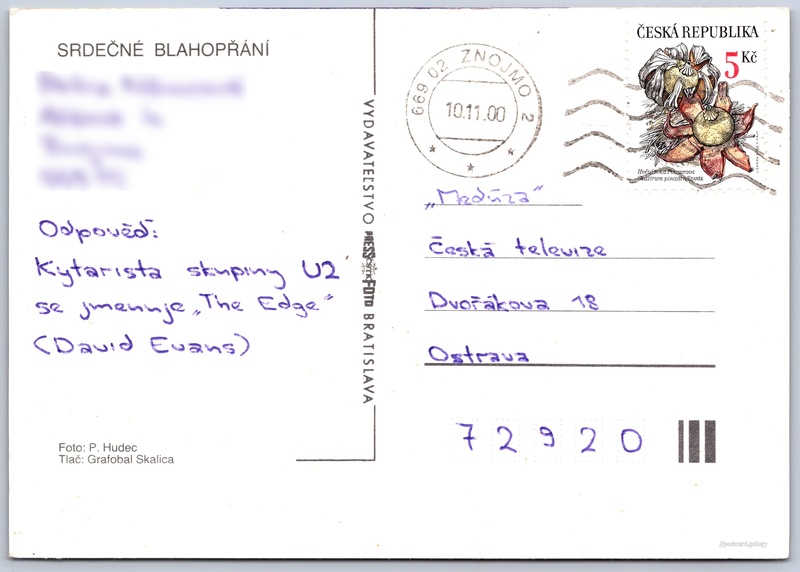 SRDEČNÉ BLAHOPŘÁNÍ
Odpověď:
Kytarista skupiny U2
se jmenuje „The Edge"
(David Evans)
Foto: P. Hudec
Tlač: Grafobal Skalica
VYDAVATEĽSTVO PRESSFOTO BRATISLAVA
669 02 ZNOJMO 2
10.11.00
ČESKÁ REPUBLIKA
5 Kč
„Medúza"
Česká televize
Dvořákova 18
Ostrava
72920